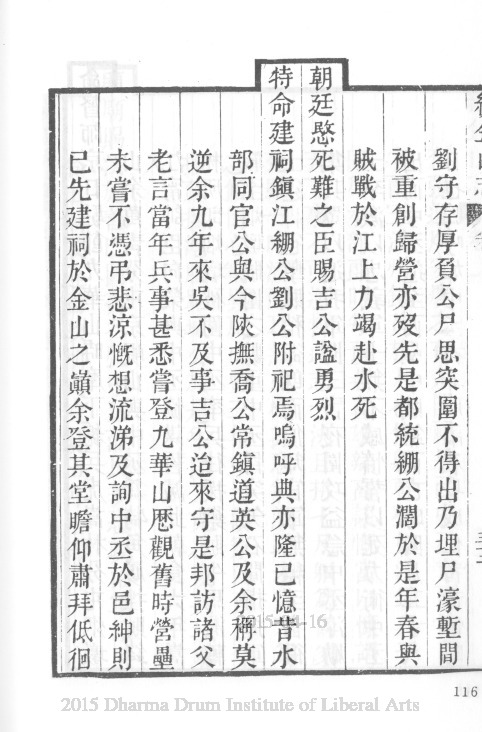 劉守存厚負公尸思突圍不得出乃埋尸濠塹間
被重創歸營亦歿先是都統綳公濶於是年春與
賊戰於江上力竭赴水死
朝廷愍死難之臣賜吉公諡勇烈
特命建祠鎮江綳公劉公附祀焉嗚呼典亦隆已憶昔水
部同官公與今陜撫喬公常鎮道英公及余稱莫
逆余九年來吳不及事吉公迨來守是邦訪諸父
老言當年兵事甚悉嘗登九華山厯觀舊時營壘
未嘗不憑弔悲涼慨想流涕及詢中丞於邑紳則
已先建祠於金山之巔余登其堂瞻仰肅拜低徊
116
2015 Dharma Drum Institute of Liberal Arts